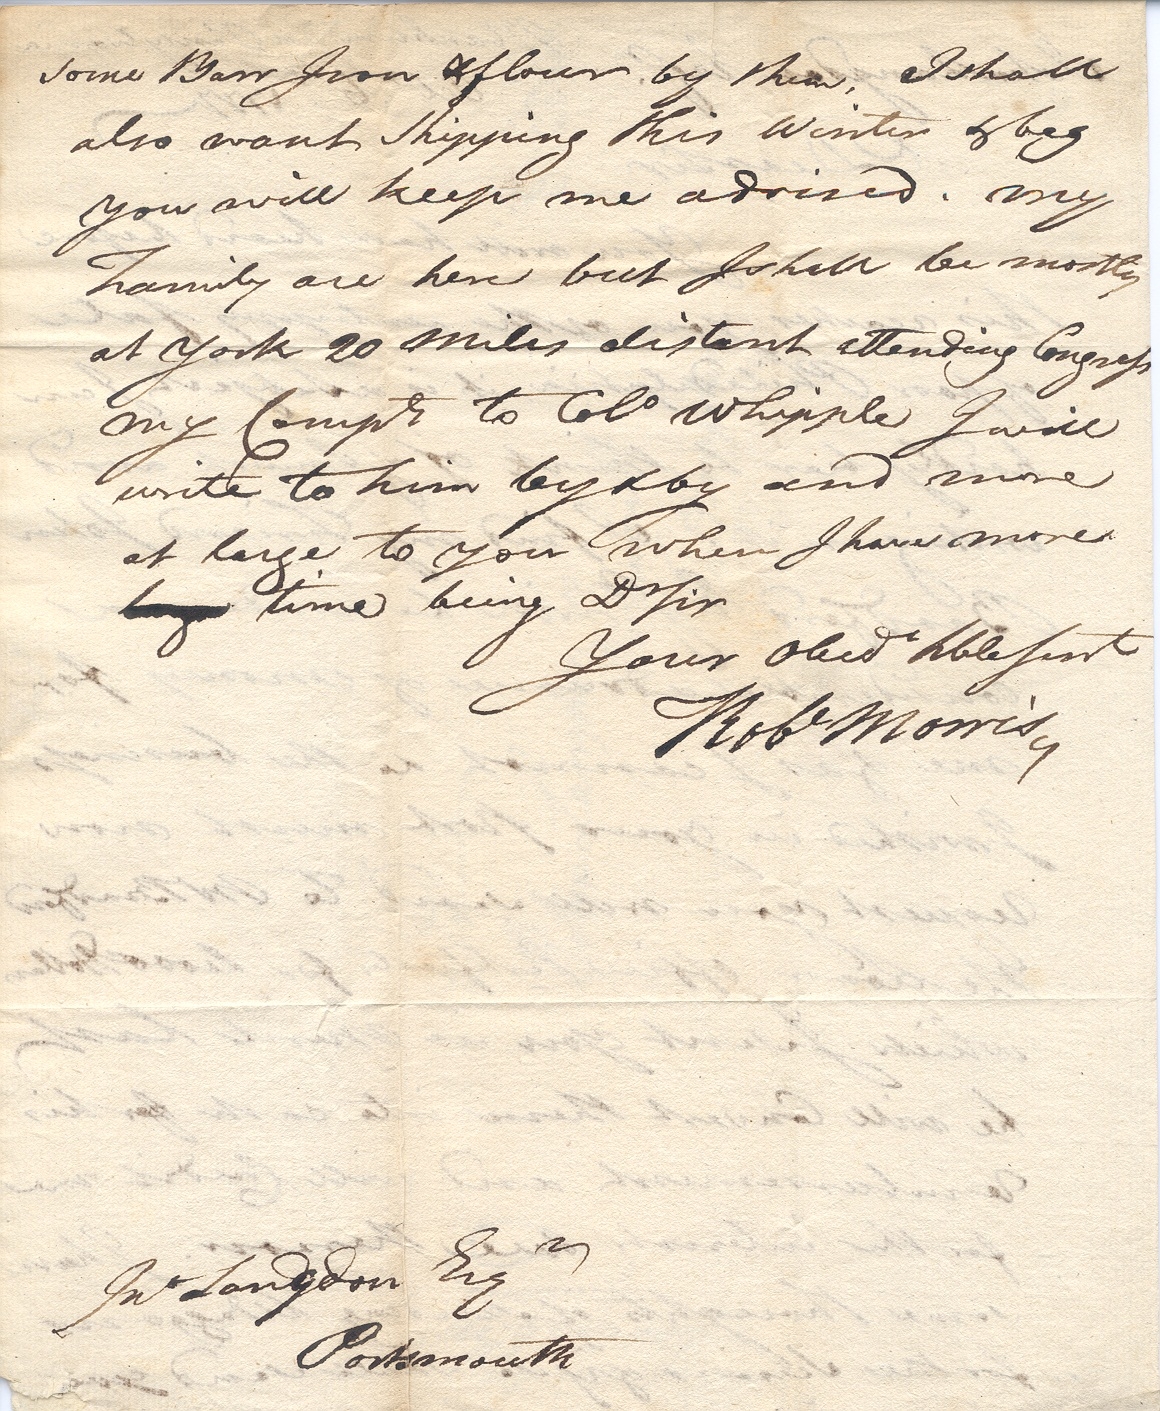 some Barr Iron & flour by them, I shall
also want Shipping this Winter & beg
you will keep me advised. my
Family are here but I shall be mostly
at York 20 Miles distant attending Congress
my Compts to Colo Whipple I will
write to him by & by and more
at large to you when I have more
time being Dr Sir
Your Obedt Hble Servt
Robt Morris
Jno Langdon Esqr
Portsmouth